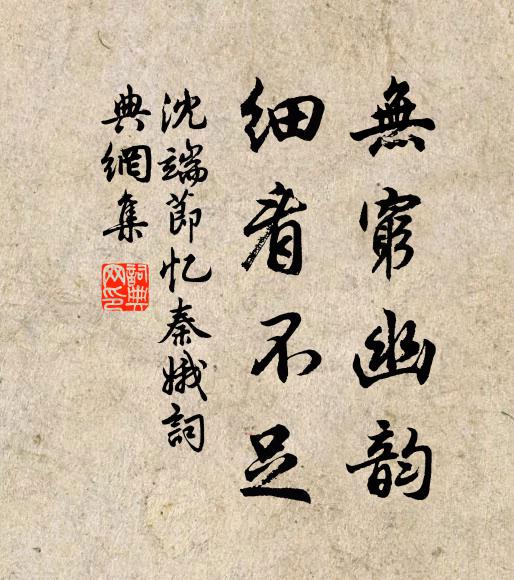 無窮幽韵
細看不足
沈端節忆秦娥詞
典網集
詞典網印